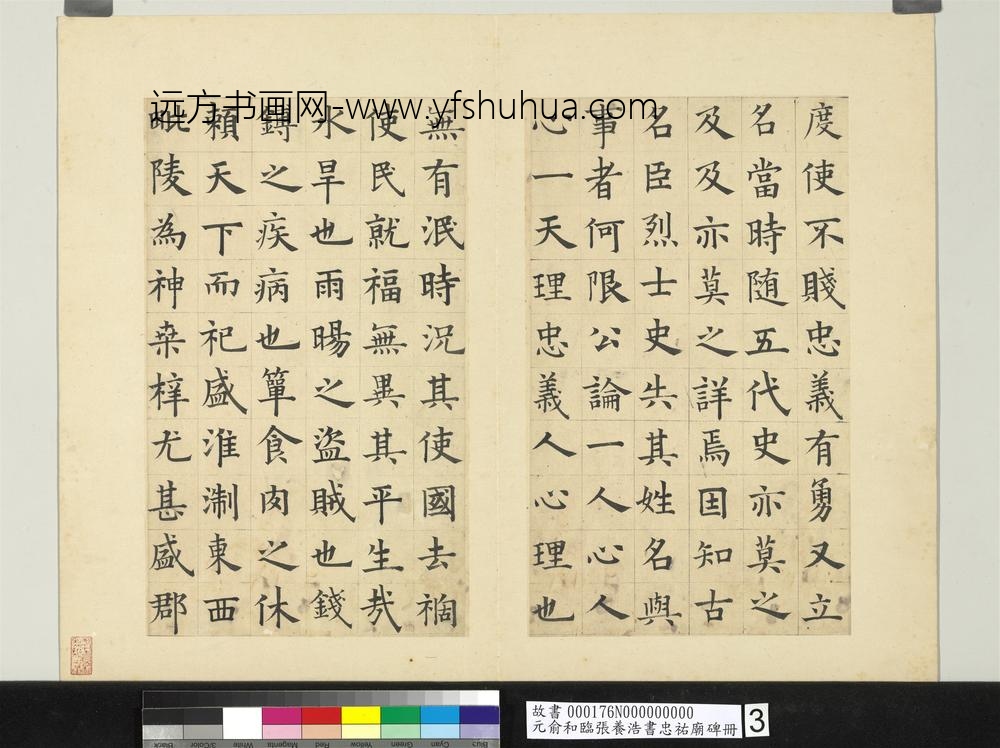 远方书画网-www.yfshuhua.com
度使不賤忠義有勇又立
名當時随五代史亦莫之
及及亦莫之詳焉因知古
名臣烈士史失其姓名與
事者何限公論一人心人
心一天理忠義人心理也
無有泯時況其使國去禍
使民就福無異其平生哉
水旱也雨暘之盜賊也錢
鎛之疾病也簞食肉之休
頼天下而祀盛淮淛東西
毗陵為神桒梓尤甚盛郡
故書 000176N000000000
元俞和臨張養浩書忠祐廟碑冊
3
Black
3/Color
White
Magenta
Red
Yellow
Green
Cyan
Blue